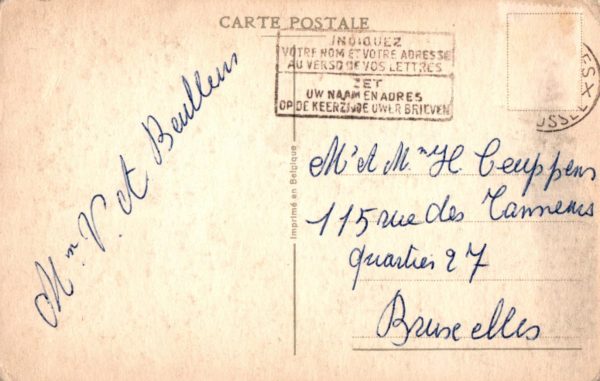 CARTE POSTALE
INDIQUEZ
VOTRE NOM ET VOTRE ADRESSE
AU VERSO DE VOS LETTRES
ZET
UW NAAM EN ADRES
OP DE KEERZIJDE UWER BRIEVEN
Mm V. A Beullens
Imprimé en Belgique
Mr A Mm H. Ceuppens
115 rue des Tanneurs
quartier 27
Bruxelles